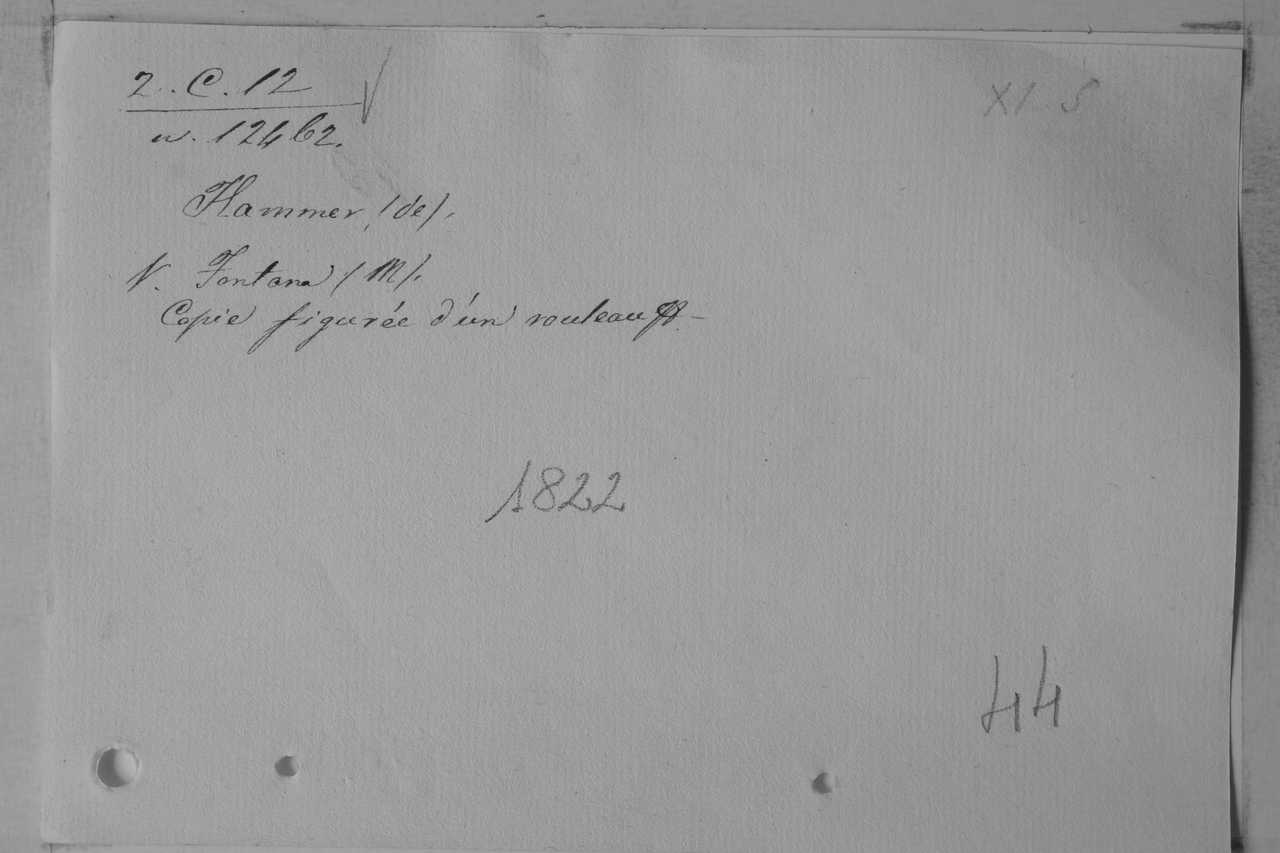 2. C. 12
XI 5
n. 12462.
Hammer, (de).
V. Fontana (M).
Copie figurée d'un rouleau
1822
44